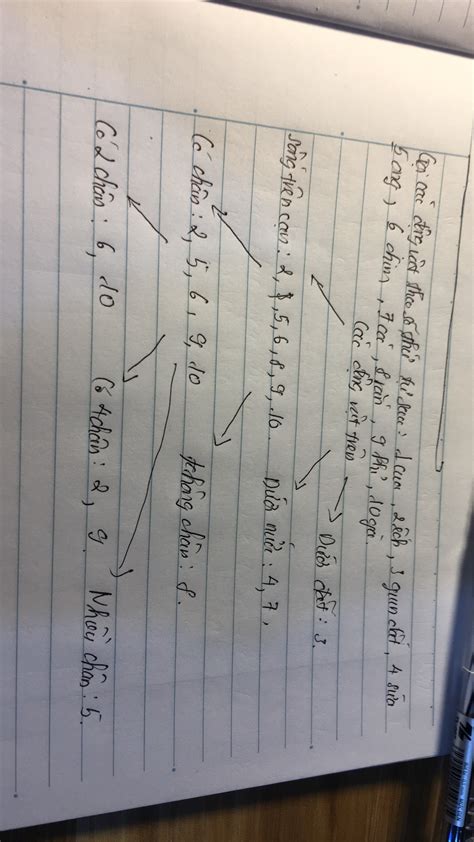 Gọi các động vật theo số thứ tự sau: 1 cua, 2 ếch, 3 giun đất, 4 sứa
5 ong, 6 chim, 7 cá, 8 rắn, 9 thỏ, 10 gà.
Các động vật trên
Dưới đất: 3.
Sống trên cạn: 2, 5, 6, 8, 9, 10 Dưới nước: 4, 7,
Có chân: 2, 5, 6, 9, 10 không chân: 8.
Có 2 chân: 6, 10 Có 4 chân: 2, 9 Nhiều chân: 5.